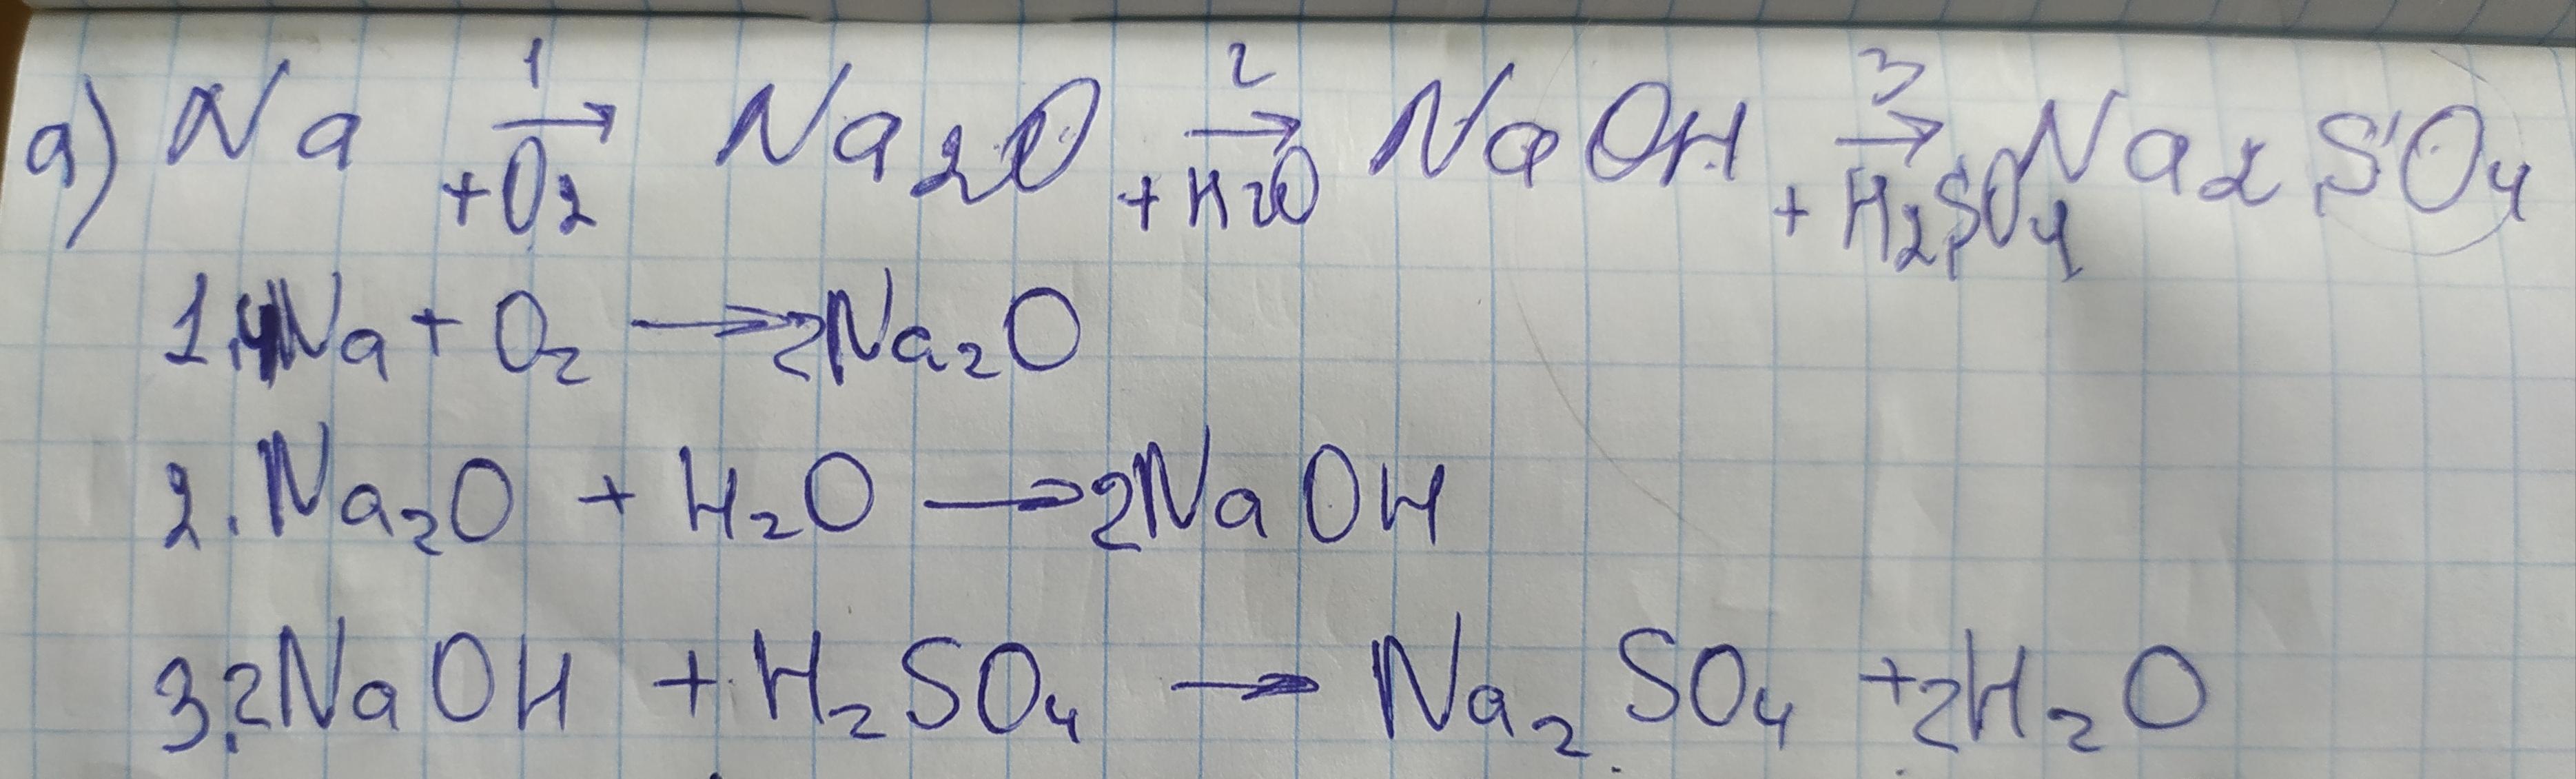 а) Na 1→ +O2 Na2O 2→ +H2O NaOH 3→ +H2SO4 Na2SO4
1. 4Na + O2 → 2Na2O
2. Na2O + H2O → 2NaOH
3. 2NaOH + H2SO4 → Na2SO4 + 2H2O